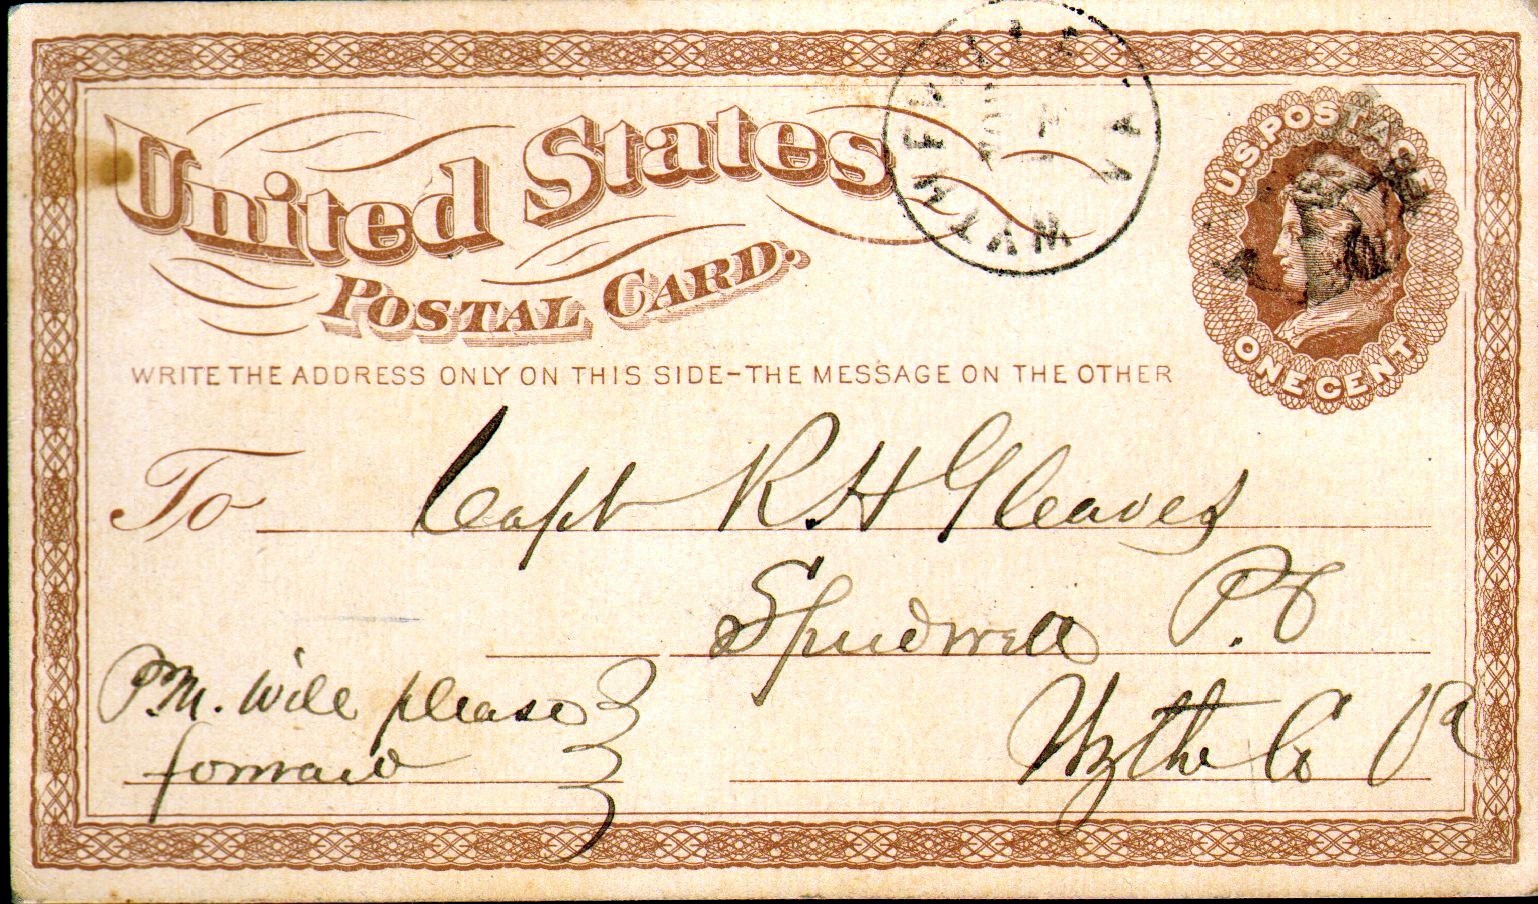 United States
POSTAL CARD.
WYTHEVILLE VA.
NOV
U.S. POSTAGE
ONE CENT
WRITE THE ADDRESS ONLY ON THIS SIDE-THE MESSAGE ON THE OTHER
To Capt R. H Gleaves
Spudwell P. O
Wythe Co Va
P.M. will please
forward